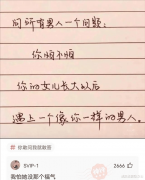 问所有男人一个问题:
你愿不愿
你的女儿长大以后
遇上一个像你一样的男人。
你敢问我就敢答
SVIP-1
2666
我怕她没那个福气